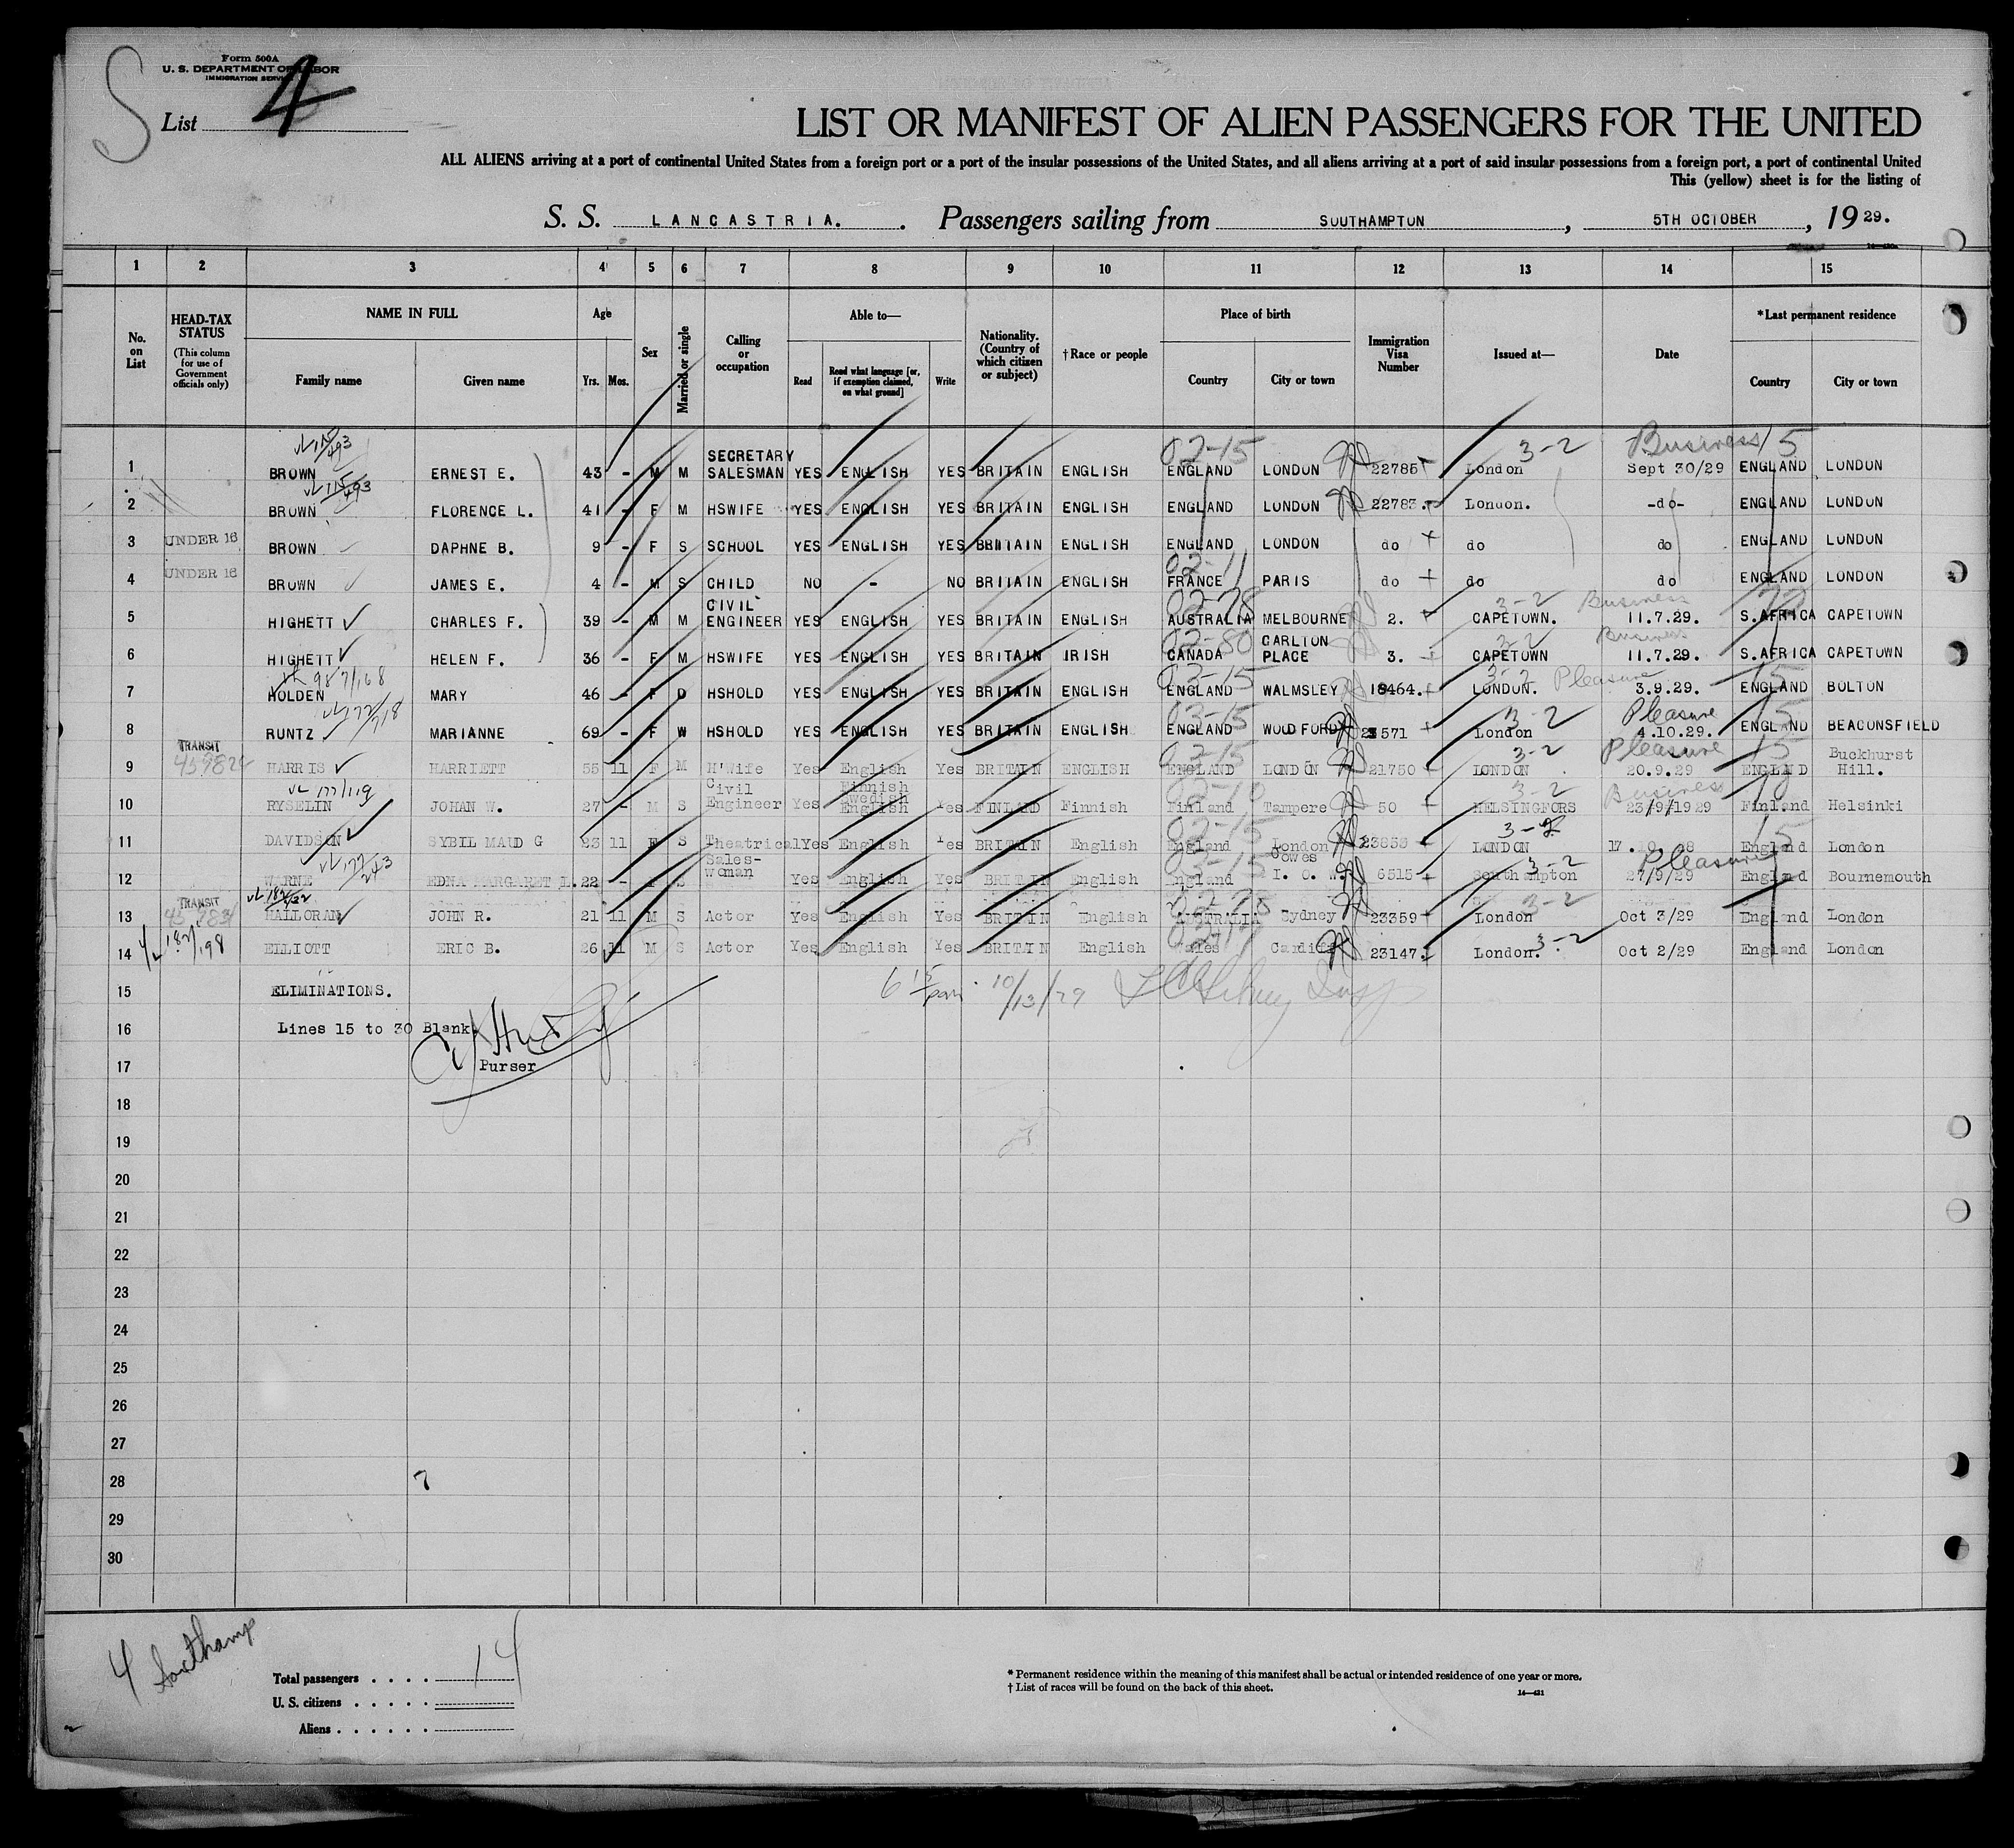 Form 500A
U. S. DEPARTMENT OF LABOR
IMMIGRATION SERVICE
S
List 4
LIST OR MANIFEST OF ALIEN PASSENGERS FOR THE UNITED
ALL ALIENS arriving at a port of continental United States from a foreign port or a port of the insular possessions of the United States, and all aliens arriving at a port of said insular possessions from a foreign port, a port of continental United
This (yellow) sheet is for the listing of
S. S. LANCASTRIA. Passengers sailing from SOUTHAMPTON, 5TH OCTOBER, 19 29.
1 2 3 4 5 6 7 8 9 10 11 12 13 14 15
No. on List HEAD-TAX STATUS (This column for use of Government officials only) NAME IN FULL Family name Given name Age Yrs. Mos. Sex Married or single Calling or occupation Able to— Read Read what language [or, if exemption claimed, on what ground] Write Nationality. (Country of which citizen or subject) †Race or people Place of birth Country City or town Immigration Visa Number Issued at— Date *Last permanent residence Country City or town
02-15 3-2 Business 15
1 BROWN ERNEST E. 43 - M M SECRETARY SALESMAN YES ENGLISH YES BRITAIN ENGLISH ENGLAND LONDON 22785 London Sept 30/29 ENGLAND LONDON
2 BROWN FLORENCE L. 41 - F M HSWIFE YES ENGLISH YES BRITAIN ENGLISH ENGLAND LONDON 22783. London. -do- ENGLAND LONDON
3 UNDER 16 BROWN DAPHNE B. 9 - F S SCHOOL YES ENGLISH YES BRITAIN ENGLISH ENGLAND LONDON do do do ENGLAND LONDON
02-11
4 UNDER 16 BROWN JAMES E. 4 - M S CHILD NO - NO BRITAIN ENGLISH FRANCE PARIS do do do ENGLAND LONDON
02-78 3-2 Business
5 HIGHETT CHARLES F. 39 - M M CIVIL ENGINEER YES ENGLISH YES BRITAIN ENGLISH AUSTRALIA MELBOURNE 2. CAPETOWN. 11.7.29. S.AFRICA CAPETOWN
02-80 3-2 Business
6 HIGHETT HELEN F. 36 - F M HSWIFE YES ENGLISH YES BRITAIN IRISH CANADA CARLTON PLACE 3. CAPETOWN 11.7.29. S.AFRICA CAPETOWN
03-15 3-2 Pleasure 15
7 HOLDEN MARY 46 - F D HSHOLD YES ENGLISH YES BRITAIN ENGLISH ENGLAND WALMSLEY 18464. LONDON. 3.9.29. ENGLAND BOLTON
03-15 3-2 Pleasure 15
8 RUNTZ MARIANNE 69 - F W HSHOLD YES ENGLISH YES BRITAIN ENGLISH ENGLAND WOODFORD 571 London 4.10.29. ENGLAND BEACONSFIELD
03-15 3-2 Pleasure 15
9 TRANSIT HARRIS HARRIETT 55 11 F M H'Wife Yes English Yes BRITAIN ENGLISH ENGLAND LONDON 21750 LONDON 20.9.29 ENGLAND Buckhurst Hill.
02-10 3-2 Business 10
10 RYSELIN JOHAN W. 27 - M S Civil Engineer Yes Finnish Swedish English Yes FINLAND Finnish Finland Tampere 50 HELSINGFORS 23/9/1929 Finland Helsinki
02-15 3-2 15
11 DAVIDSON SYBIL MAUD G 23 11 F S Theatrical Yes English Yes BRITAIN English England London LONDON England London
03-15 3-2 Pleasure
12 WARNE EDNA MARGARET I. 22 - F S Sales-woman Yes English Yes BRITIN English England Cowes I. O. W. 6515 Southampton 27/9/29 England Bournemouth
02-78 3-2
13 TRANSIT HALLORAN JOHN R. 21 11 M S Actor Yes English Yes BRITIN English AUSTRALIA Sydney 23359 London Oct 3/29 England London
3-2
14 ELLIOTT ERIC B. 26 11 M S Actor Yes English Yes BRITIN English Wales Cardiff 23147. London. Oct 2/29 England London
15 ELIMINATIONS. 6 15 pm. 10/13/29
16 Lines 15 to 30 Blank
17 Purser
18
19
20
21
22
23
24
25
26
27
28
29
30
4 Southamp
Total passengers . . . . 14
U. S. citizens . . . . .
Aliens . . . . . .
* Permanent residence within the meaning of this manifest shall be actual or intended residence of one year or more.
† List of races will be found on the back of this sheet.
14—431